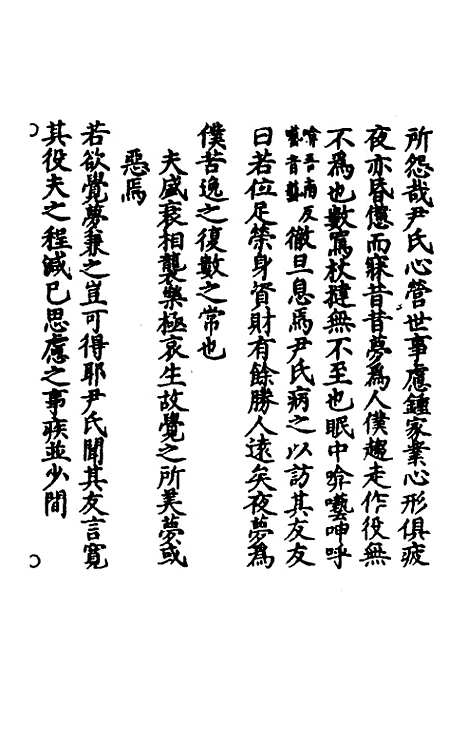 所怨哉尹氏心營世事慮鍾家業心形俱疲
夜亦昏憊而寐昔昔夢為人僕趨走作役無
不為也數罵杖撻無不至也眠中啽囈呻呼
啽吾南反
囈音藝
徹旦息焉尹氏病之以訪其友友
曰若位足榮身資財有餘勝人遠矣夜夢為
僕苦逸之復數之常也
夫盛衰相襲樂極哀生故覺之所美夢或
惡焉
若欲覺夢兼之豈可得耶尹氏聞其友言寬
其役夫之程減已思慮之事疾並少間